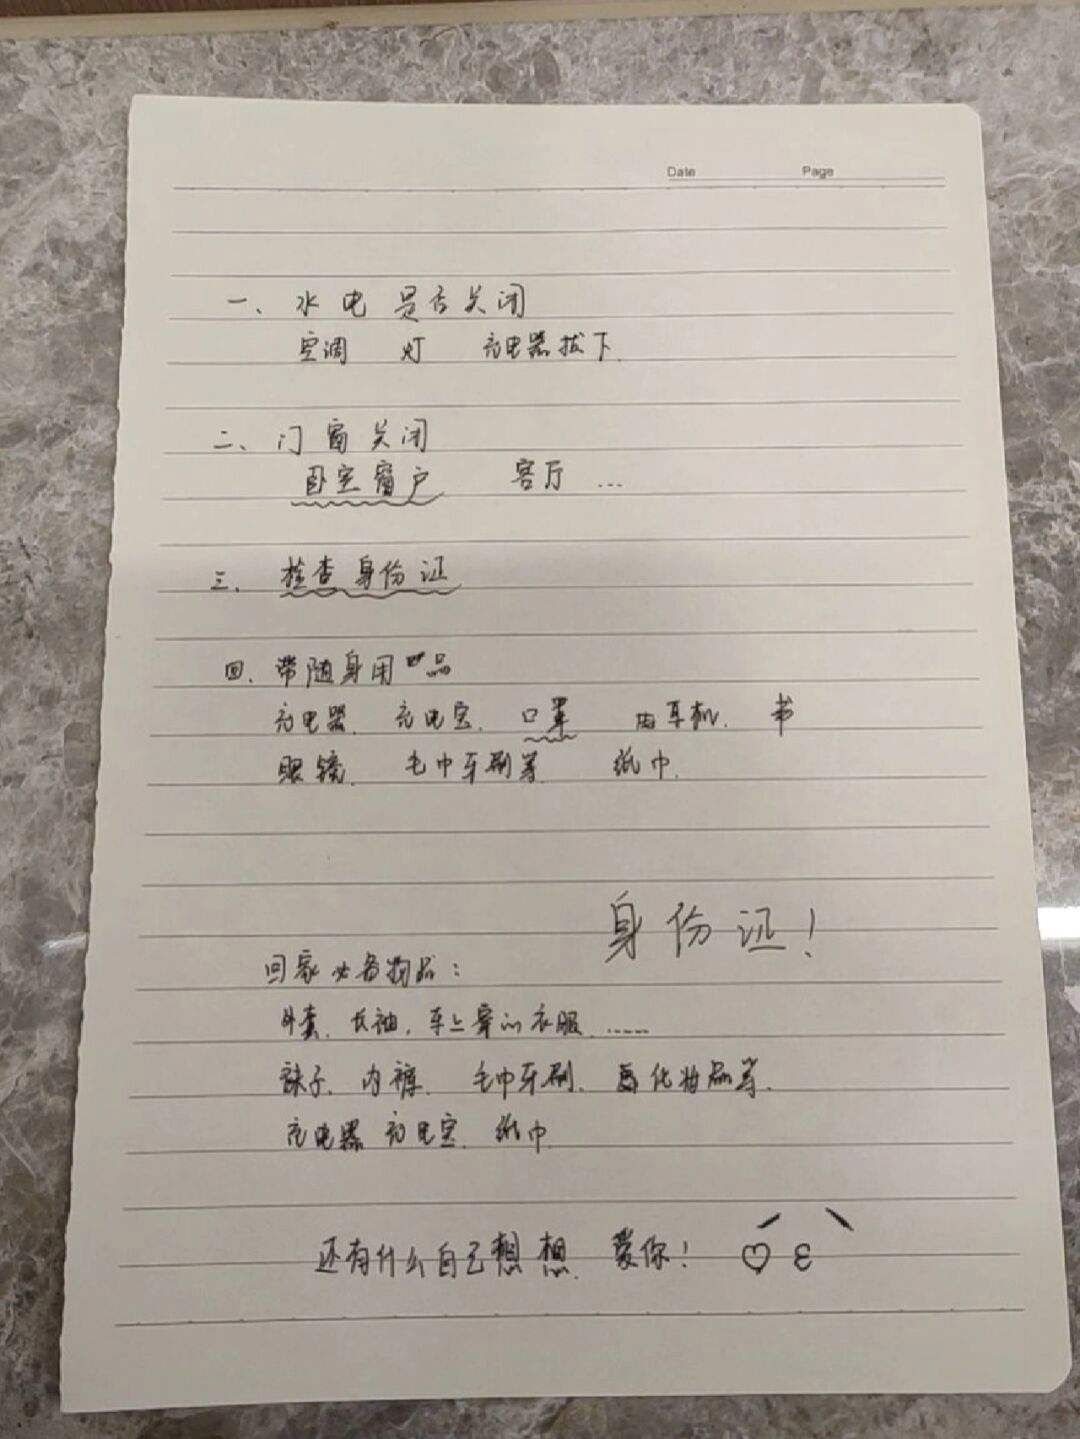 Date Page
一、水电是否关闭
空调 灯 充电器拔下.
二、门窗关闭
卧室窗户 客厅 ...
三、检查身份证
四、带随身用品
充电器. 充电宝. 口罩 耳机. 书
眼镜. 毛巾牙刷等 纸巾.
身份证!
回家必备物品:
外套. 长袖, 车上穿的衣服......
袜子. 内裤. 毛巾牙刷. 化妆品等.
充电器 充电宝. 纸巾
还有什么自己想想. 爱你!